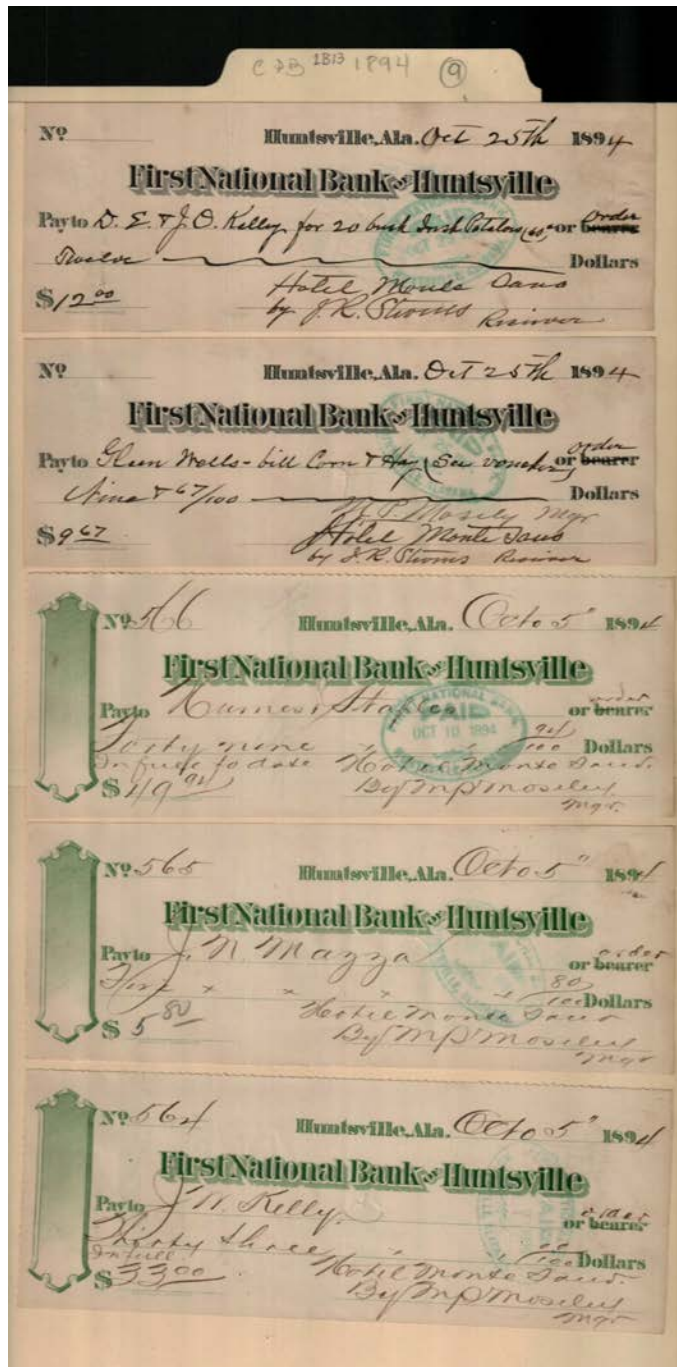 CDB 1813 1894 9
No Huntsville, Ala. Oct 25th 1894
First National Bank of Huntsville
Pay to D. E. & J. O. Kelly for 20 bush Irish Potatoes (60c or bearer order
Twelve Dollars
$12.00 Hotel Monte Sano
by J. R. Stevens Receiver
No Huntsville, Ala. Oct 25th 1894
First National Bank of Huntsville
Pay to Glenn Wells - bill Corn & Hay (See voucher) or bearer order
Nine & 67/100 Dollars
M. P. Mosely Mgr
$9.67 Hotel Monte Sano
by J. R. Stevens Receiver
No 566 Huntsville, Ala. Octo 5" 1894
First National Bank of Huntsville
Pay to Staples or bearer order
FIRST NATIONAL BANK
PAID
OCT 10 1894
Forty nine 94/100 Dollars
In full to date Hotel Monte Sano
$49.94 By M P Moseley
Mgr.
No 565 Huntsville, Ala. Octo 5" 1894
First National Bank of Huntsville
Pay to J. N. Mazza or bearer order
Five 80/100 Dollars
$5.80 Hotel Monte Sano
By M P Moseley
Mgr
No 564 Huntsville, Ala. Octo 5" 1894
First National Bank of Huntsville
Pay to J. W. Kelly. or bearer order
Thirty three 00/100 Dollars
In full Hotel Monte Sano
$33.00 By M P Moseley
Mgr